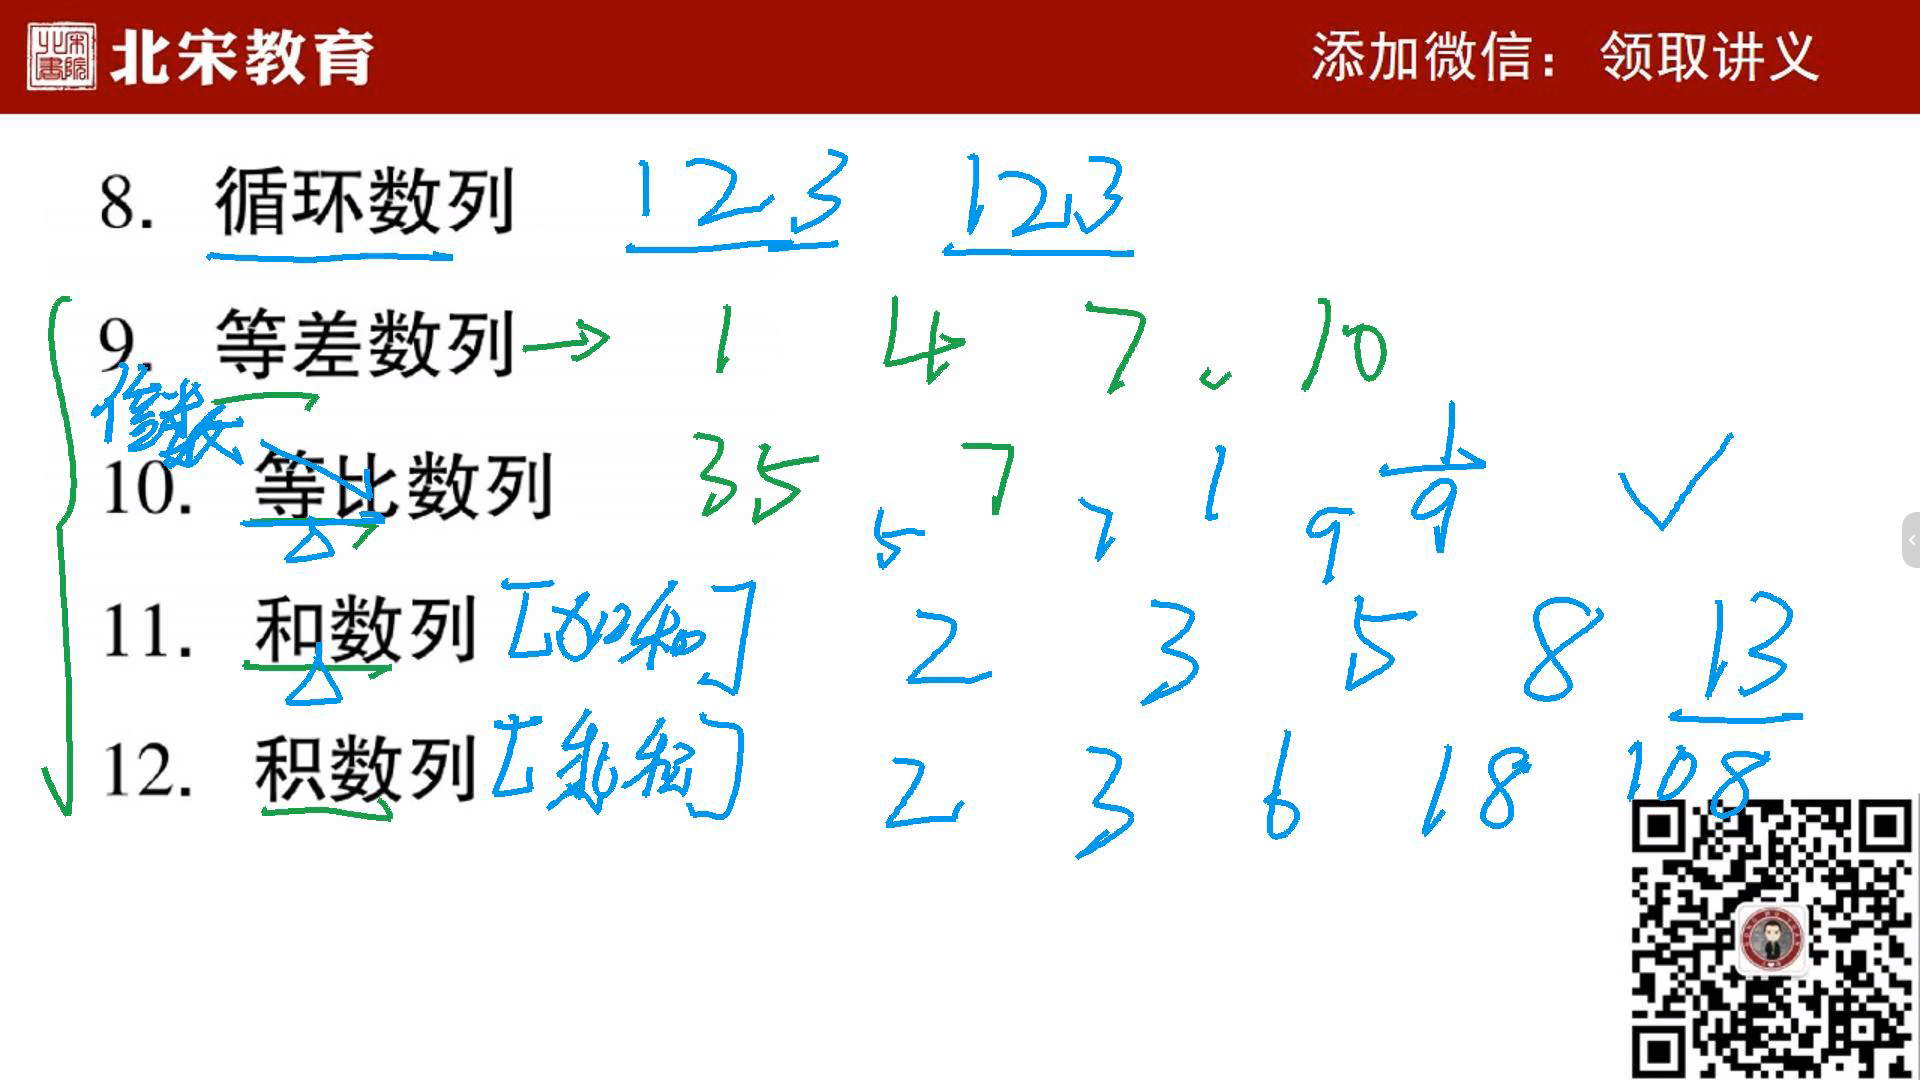 北宋教育
添加微信：领取讲义
8. 循环数列 1 2 3 1 2 3
9. 等差数列 → 1 4 7 10
倍数
10. 等比数列 35 7 1 1/9
5 7 9
11. 和数列 [ 和] 2 3 5 8 13
12. 积数列 [乘积] 2 3 6 18 108